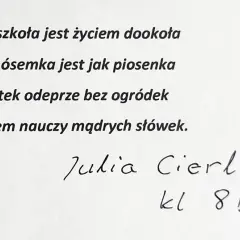 szkoła jest życiem dookoła
ósemka jest jak piosenka
odeprze bez ogródek
nauczy mądrych słówek.
Julia
kl 8